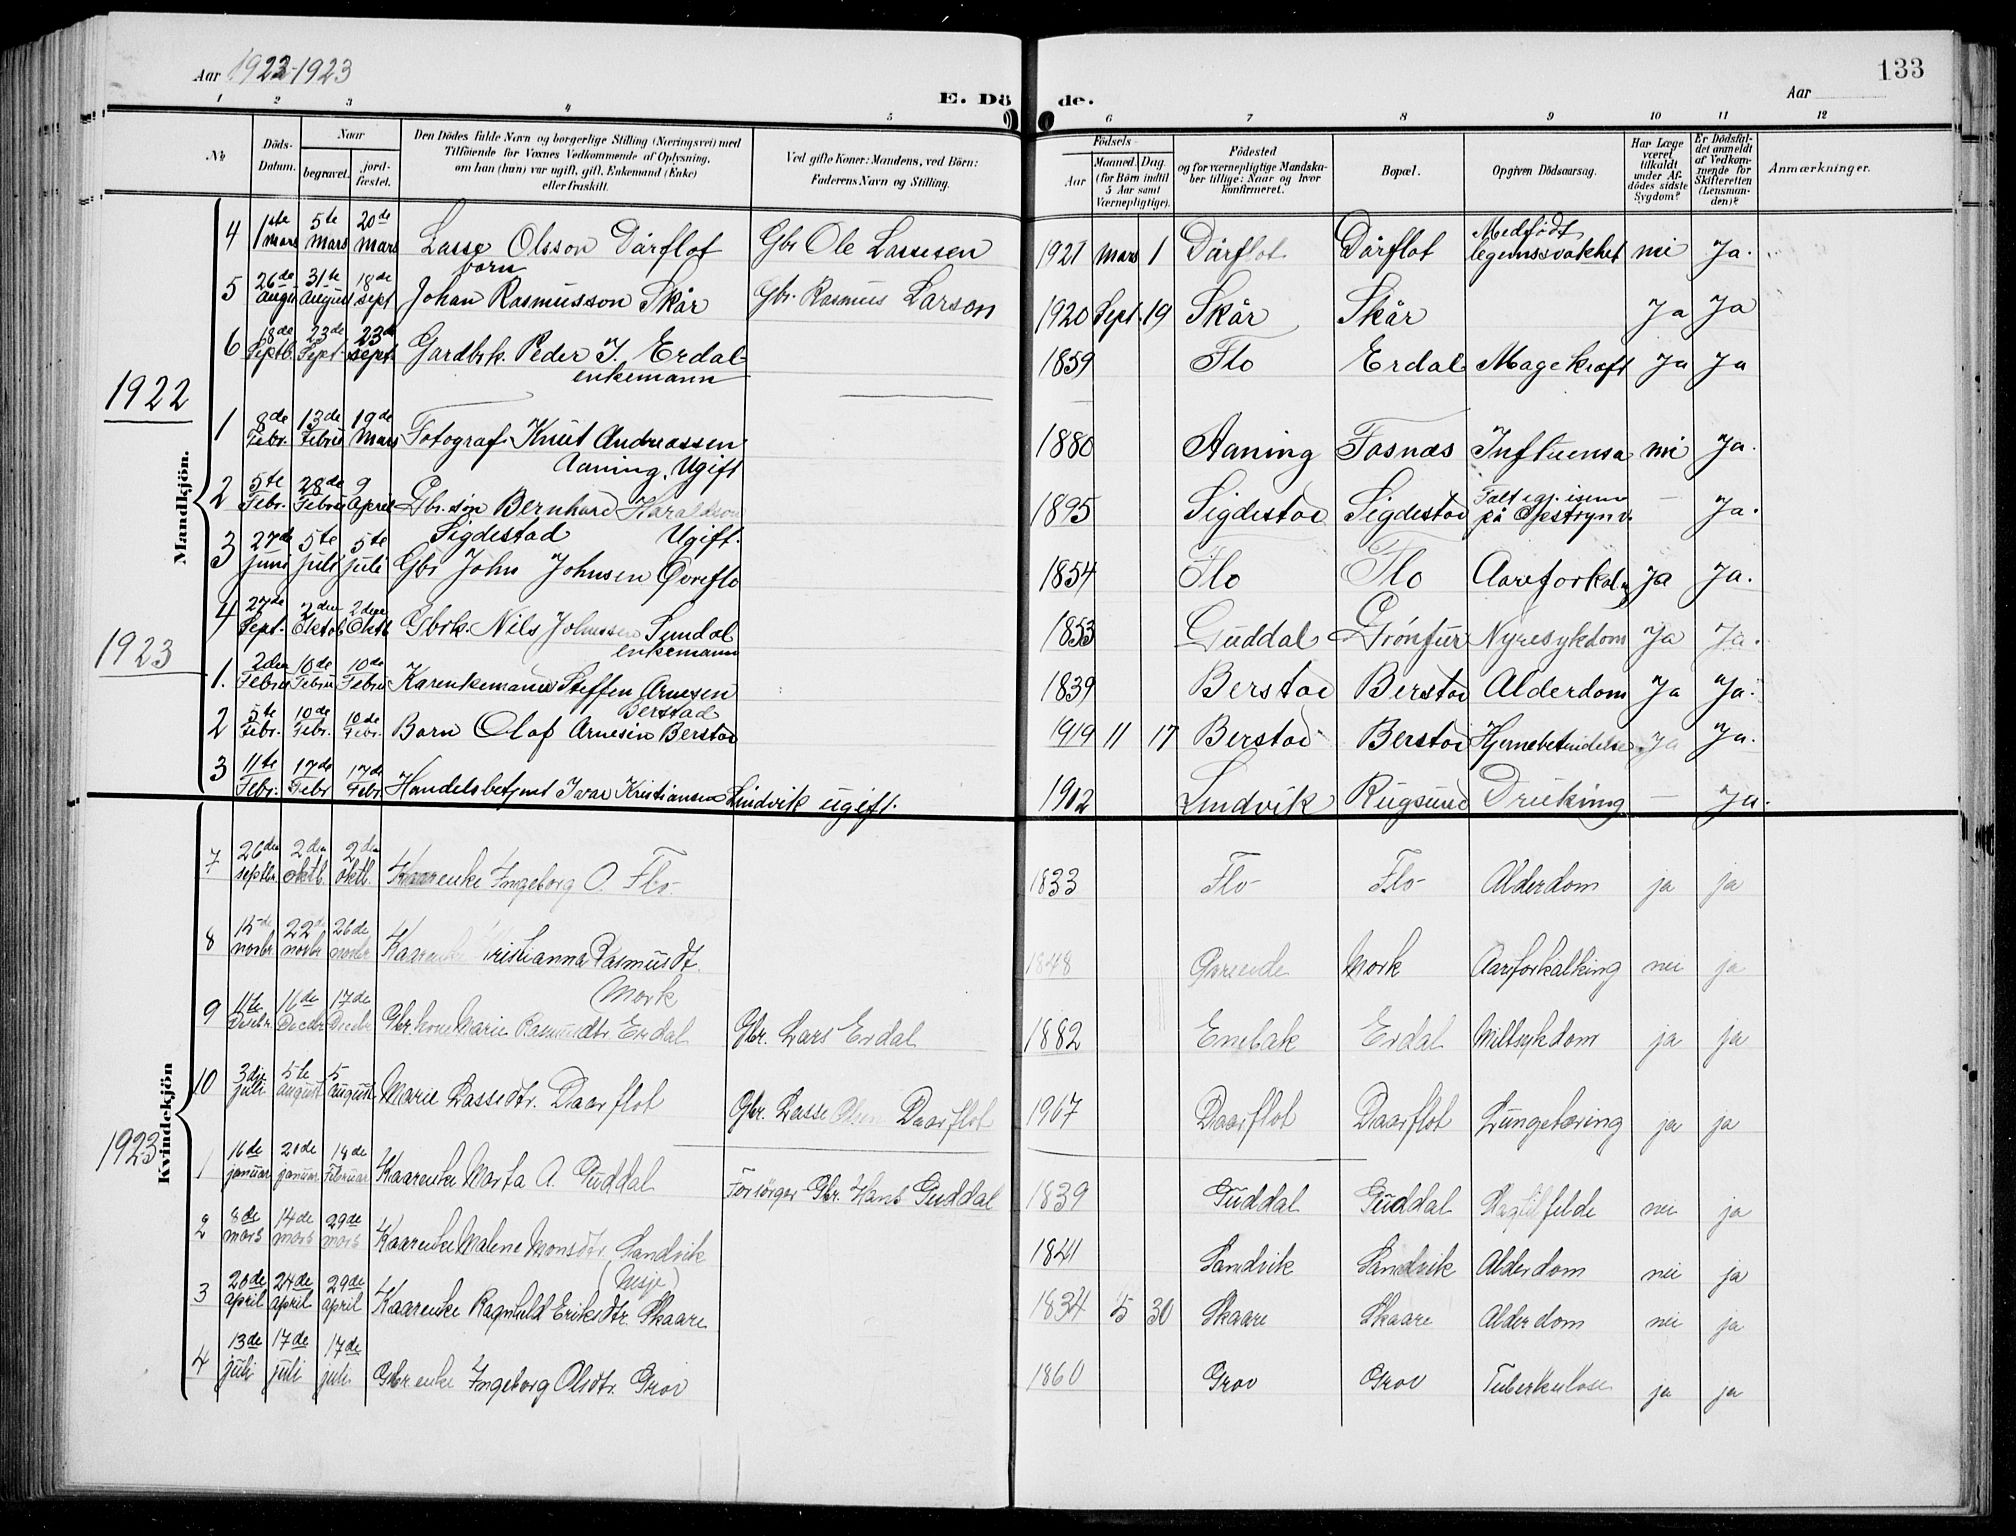 Aar 1922-1923
E. Dö de.
133
Aar
1 2 3 4 5 6 7 8 9 10 11 12
No
Döds-Datum.
Naar
begravet.
jord-fæstet.
Den Dödes fulde Navn og borgerlige Stilling (Næringsvei) med
Tilföiende for Voxnes Vedkommende af Oplysning,
om han (hun) var ugift, gift, Enkemand (Enke)
eller fraskilt.
Ved gifte Koner: Mandens, ved Börn:
Faderens Navn og Stilling.
Födsels-
Aar
Maaned. Dag.
(for Börn indtil
5 Aar samt
Værnepligtige).
Födested
og for værnepligtige Mandska-
ber tillige: Naar og hvor
konfirmeret.
Bopæl.
Opgiven Dödsaarsag.
Har Læge
været
tilkaldt
under Af-
dödes sidste
Sygdom?
Er Dödsfal-
det anmeldt
af Vedkom-
mende for
Skifteretten
(Lensman-
den)?
Anmærkninger.
Mandkjön.
4 1ste mars 5te mars 20de mars Lasse Olsson Dårflot Gbr Ole Lassesen 1921 mars 1 Dårflot Dårflot Medfödt legemssvakhet nei Ja.
5 26de august 31te august 18de sept barn Johan Rasmusson Skår Gbr. Rasmus Larson 1920 Sept. 19 Skår Skår Ja Ja
6 18de Septb. 23de Sept. 23de sept. Gardbrk. Peder J. Erdal enkemann 1859 Flo Erdal Magekræft Ja Ja
1922
1 8de Febr. 13de Febru 19de mars Fotograf Knut Andreassen Aaning, Ugift 1880 Aaning Fosnæs Influensa nei Ja.
2 5te Febr. 28de Febru 9 April Gbr.søn Bernhard Haraldson Sigdestad Ugift. 1895 Sigdestad Sigdestad Falt igj. isenn på Opstrynv. — Ja.
3 27de Juni 5te Juli 5te juli Gbr John Johnsen Øvreflo 1854 Flo Flo Aareforkaln Ja Ja.
4 27de Sept. 2den Oktob 2den Oktb Gbrk. Nils Johnssen Sundal enkemann 1853 Guddal Grönfur Nyresykdom Ja Ja.
1923
1. 2den Febru 10de Febru 10de Febru Karenkemann Steffen Arnesen Berstad 1839 Berstad Berstad Alderdom Ja Ja.
2 5te Febr. 10de Febr. 10de Febr. Barn Olaf Arnesen Berstad 1919 11 17 Berstad Berstad Hjernebetendelse Ja Ja.
3 11te Febr. 17de Febr 17de Febr. Handelsbetjent Ivar Kristiansen Lindvik ugift. 1902 Lindvik Rugsund Drukning — Ja.
Kvindekjön
7 26den septbr. 2den oktb. 2den oktb. Kaarenke Ingeborg O. Flo 1833 Flo Flo Alderdom ja ja
8 15de novbr 22de novbr 26de novbr Kaarenke Kristianna Rasmusdt. Mork 1848 Mork Aareforkalking nei ja
9 11te Desebr. 16de Decebr 17de Decebr Gbr.kone Marie Rasmusdtr Erdal Gbr. Lars Erdal 1882 Enebak Erdal Miltsykdom ja ja
10 3die juli 5te august 5 august Marie Lassedtr. Daarflot Gbr. Lasse Olsen Daarflot 1907 Daarflot Daarflot Lungetæring ja ja
1923
1 16de januar 20de januar 14de Februar Kaarenke Marta A. Guddal Forsörger Gbr. Hans Guddal 1839 Guddal Guddal Slagtilfelde nei ja
2 8de mars 14de mars 29de mars Kaarenke Malene Monsdtr. Sandvik 1841 Sandvik Sandvik Alderdom nei ja
3 20de april 24de april 29de april Kaarenke Ragnhild Eriksdtr. Skaare (Nesje) 1834 5 30 Skaare Skaare Alderdom nei ja
4 13de juli 17de juli 17de juli Gbr.enke Ingeborg Olsdtr. Grov 1860 Grov Grov Tuberkulose ja ja